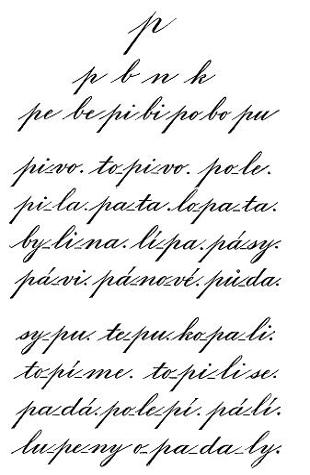 p
p b n k
pe be pi bi po bo pu
pi-vo. to-pi-vo. po-le.
pi-la. pa-ta. lo-pa-ta.
by-li-na. lí-pa. pá-sy.
pá-vi. pá-no-vé. pů-da.
sy-pu. te-pu. ko-pa-li.
to-pí-me. to-pi-li se.
pa-dá. po-le-pí. pá-lí.
lu-pe-ny o-pa-da-ly.